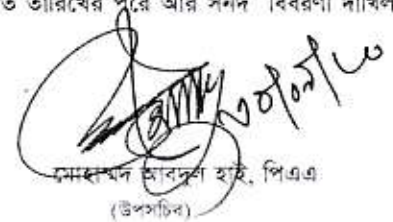 তারিখের পরে আর সনদ বিবরণী দাখিল
মোহাম্মদ আবদুল হাই, পিএএ
(উপসচিব)